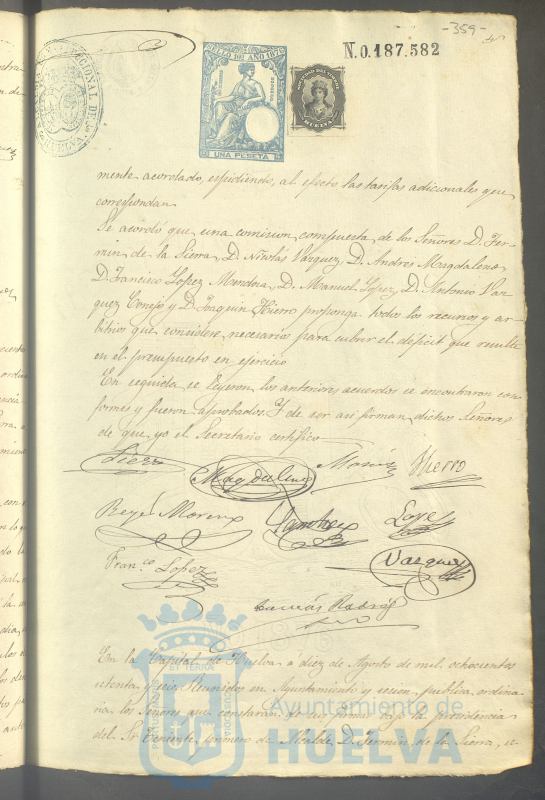 -359-
N.0.187.582
SELLO 11º AÑO 1876
UNA PESETA
HUELVA
mente acordado, espidiendo, al efecto las tarifas adicionales que
correspondan
Se acordó que una comision compuesta de los Señores D. Fer-
min de la Sierra, D. Nicolás Vazquez, D. Andres Magdalena,
D. Francisco Lopez Mendoza, D. Manuel Lopez, D. Antonio Vaz-
quez Conejo y D. Joaquin Hierro proponga todos los recursos y ar-
bitrios que considere necesarios para cubrir el déficit que resulte
en el presupuesto en ejercicio
En seguida se leyeron los anteriores acuerdos se encontraron con
formes y fueron aprobados. Y de ser asi firman dichos Señores
de que yo el Secretario certifico
Sierra Magdalena Hierro
Reyes Moreno Sanchez Lopez
Franco Lopez Vazquez
En la Capital de Huelva á diez de Agosto de mil ochocientos
setenta y seis Reunidos en Ayuntamiento y sesion publica ordina-
ria los Señores que constarán de sus firmas bajo la presidencia
del Sr Teniente primero de Alcalde D. Fermin de la Sierra, se
Ayuntamiento de
HUELVA